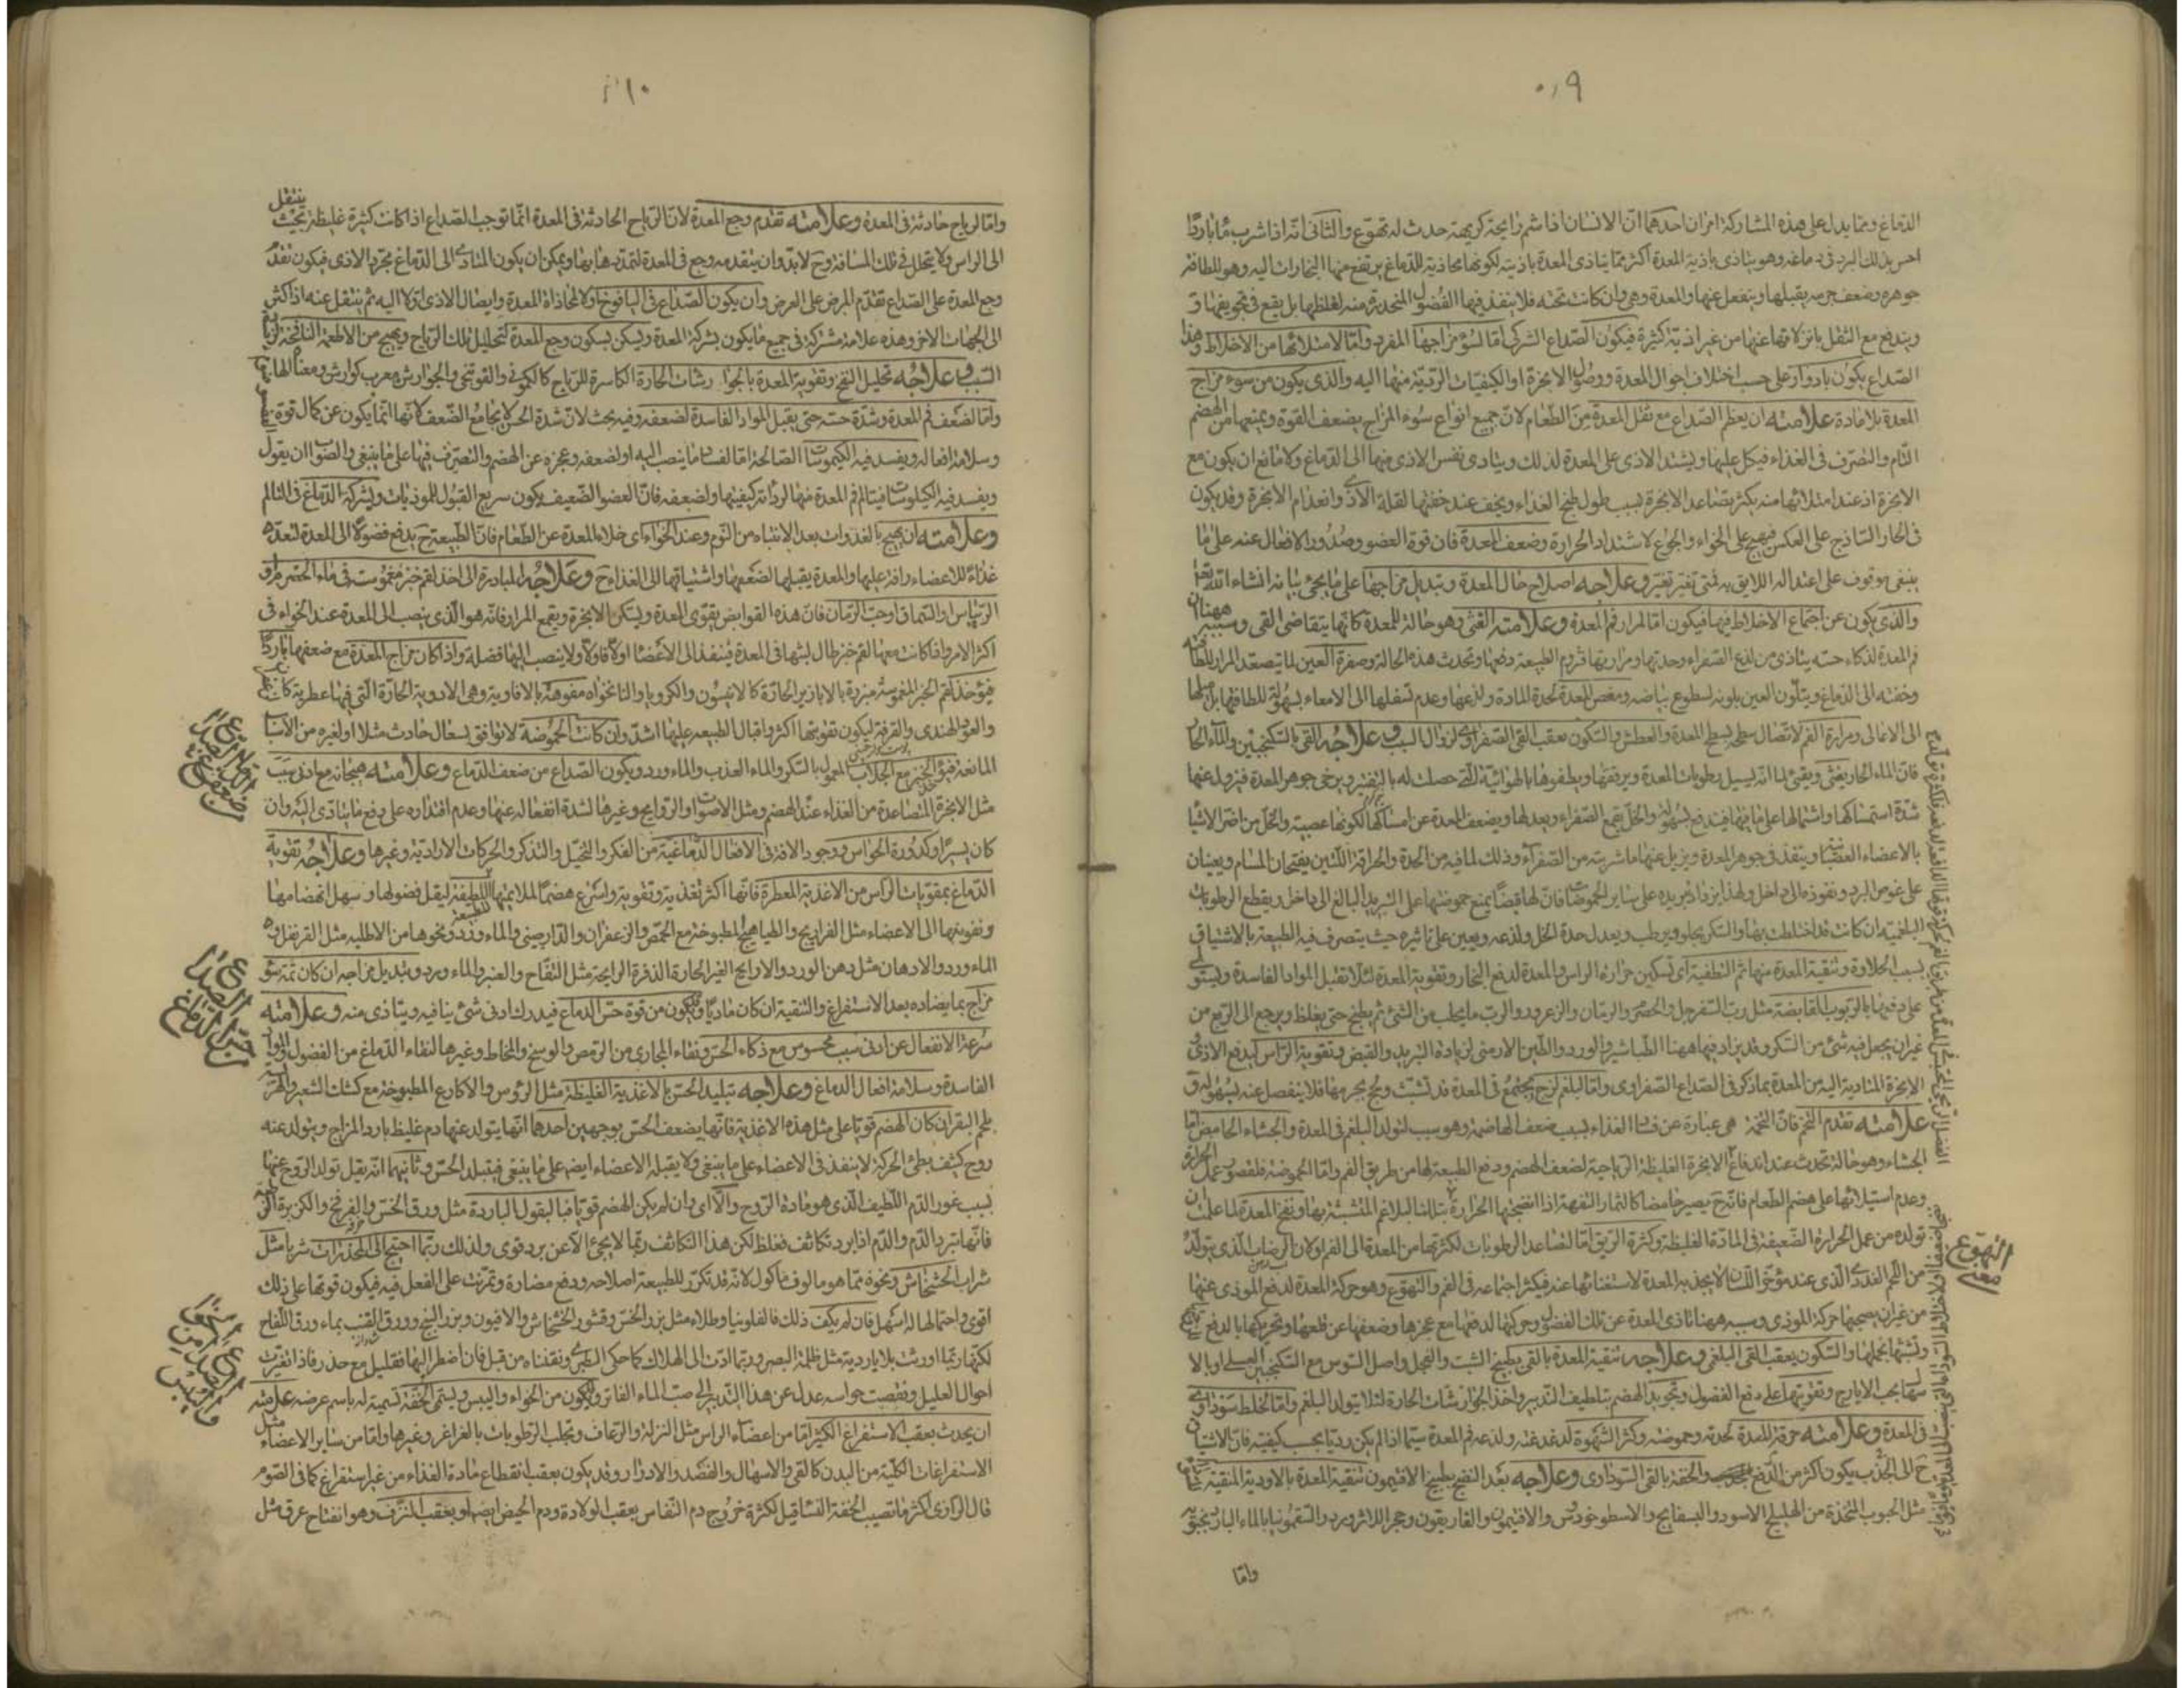 ٠٩
الدماغ ومما يدل على هذه المشاركة امران احدهما ان الانسان اذا شم رايحة كريهة حدث له تهوع والثانى انه اذا شرب ماء باردا
احس بذلك البرد فى دماغه وهو يتاذى باذية المعدة اكثر مما يتاذى المعدة باذيته لكونها محاذية للدماغ يرتفع منها البخارات اليه وهو للطافة
جوهره وضعف جرمه يقبلها وينفعل عنها والمعدة وهى وان كانت تحته فلا ينفذ فيها الفضول المنحدرة منه لغلظها بل يقع فى تجويفها و
يندفع مع الثقل بانزلاقها عنها من غير اذية كثيرة فيكون الصداع الشركى اما لسوء مزاجها المفرد واما لامتلائها من الاخلاط وهذا
الصداع يكون بادوار على حسب اختلاف احوال المعدة ووصول الابخرة او الكيفيات الردية منها اليه والذى يكون من سوء مزاج
المعدة بلا مادة علامته ان يعظم الصداع مع ثقل المعدة من الطعام لان جميع انواع سوء المزاج يضعف القوة ويمنعها من الهضم
التام والتصرف فى الغذاء فيكل عليها ويشتد الاذى على المعدة لذلك ويتادى نفس الاذى منها الى الدماغ ولا مانع ان يكون مع
الابخرة اذ عند امتلائها منه يكثر تصاعد الابخرة بسبب طول طبخ الغذاء ويخف عند خفتها لقلة الاذى وانعدام الابخرة وقد يكون
فى الحار الساذج على العكس فيهيج على الخواء والجوع لاشتداد الحرارة وضعف المعدة فان قوة العضو وصدور الافعال عنه على ما
ينبغى موقوف على اعتداله اللايق به فمتى تغير تغيرت وعلاجه اصلاح حال المعدة وتبديل مزاجها على ما يجئ بيانه انشاء الله تعالى
والذى يكون عن اجتماع الاخلاط فيها فيكون اما لمرار فم المعدة وعلامته الغثى وهو حالة للمعدة كانها يتقاضى القى وسببه ههنا ان
فم المعدة لذكاء حسه يتاذى من لذع الصفراء وحدتها ومرارتها فتروم الطبيعة دفعها وتحدث هذه الحالة وصفرة العين لما يتصعد المرار للطافته
وخفته الى الدماغ ويتلون العين بلونه لسطوع بياضه ومغص المعدة لحدة المادة ولذعها وعدم تسفلها الى الامعاء بسهولة للطافتها بل ميلها
الى الاعالى ومرارة الفم لاتصال سطحه بسطح المعدة والعطش والسكون بعقب القى الصفراوى لزوال السبب وعلاجه القى بالسكنجبين والماء الحار
فان الماء الحار يغثى ويقيئ لما انه يسيل رطوبات المعدة ويرققها ويطفوها بالهوائية التى حصلت له بالتبخير ويرخى جوهر المعدة فيزول عنها
شدة استمساكها واشتمالها على ما فيها فيندفع بسهولة والخل يقمع الصفراء ويعدلها ويضعف المعدة عن امساكها لكونها عصبية والخل من اضر الاشيا
بالاعضاء العصبانية وينفذ فى جوهر المعدة ويزيل عنها ما شربته من الصفراء وذلك لما فيه من الحدة والحرافة اللتين يفتحان المسام ويعينان
على غوص البرد ونفوذه الى داخل ولهذا يزداد تبريده على ساير الحموضات فان لها قبضا يمنع حموضتها على التبريد البالغ الى داخل ويقطع الرطوبات
البلغمية ان كانت قد اختلطت بها والسكر يجلو ويرطب ويعدل حدة الخل ولذعه ويعين على تاثيره حيث يتصرف فيه الطبيعة بالاشتياق
بسبب الحلاوة وتنقية المعدة منها ثم التطفية اى تسكين حرارة الراس والمعدة لدفع البخار وتقوية المعدة لئلا تقبل المواد الفاسدة ويستولى
على دفعها بالربوب القابضة مثل رب السفرجل والحصرم والرمان والزعرور والرب ما يحلب من الشئ ثم يطبخ حتى يغلظ ويرجع الى الربع من
غير ان يجعل فيه شئ من السكر وقد يزاد فيها ههنا الطباشير والورد والطين الارمنى لزيادة التبريد والقبض وتقوية الراس ليدفع الاذى و
الابخرة المتادية اليه من المعدة بما ذكر فى الصداع الصفراوى واما البلغم لزج يجتمع فى المعدة قد تشبث ولحج بجرمها فلا ينفصل عنه بسهولة و
علامته تقدم التخم فان التخمة هى عبارة عن فساد الغذاء بسبب ضعف الهاضمة وهو سبب لتولد البلغم فى المعدة والجشاء الحامض اما
الجشاء وهو حالة تحدث عند اندفاع الابخرة الغليظة الرياحية لضعف الهضم ودفع الطبيعة لها من طريق الفم واما الحموضة فلقصور عمل الحرارة
وعدم استيلائها على هضم الطعام فانه ح يصير حامضا كالثمار التفهة اذا انضجتها الحرارة بتلك البلاغم المتشبثة بها ونفخ المعدة لما علمت ان
تولده من عمل الحرارة الضعيفة فى المادة الغليظة وكثرة الريق اما لتصاعد الرطوبات لكثرتها من المعدة الى الفم او لان الرضاب الذى يتولد
من اللحم الغددى الذى عند مؤخر اللسان لا يجذبه المعدة لاستغنائها عنه فيكثر اجتماعه فى الفم والتهوع وهو حركة المعدة لدفع الموذى عنها
من غير ان يصحبها حركة الموذى وسببه ههنا تاذى المعدة عن تلك الفضول وحركتها لدفعها مع عجزها وضعفها عن قلعها وتحريكها بالدفع
وتشبثها بخملها والسكون بعقب القى البلغمى وعلاجه تنقية المعدة بالقى بطبيخ الشبت والفجل واصل السوس مع السكنجبين العسلى او بالا
سهال بحب الايارج وتقويتها على دفع الفضول وتجويد الهضم بتلطيف التدبير واخذ الجوارشات الحارة لئلا يتولد البلغم واما لخلط سوداوى
فى المعدة وعلامته حرقة المعدة لحدته وحموضته وكثرة الشهوة لدغدغته ولذعه فم المعدة سيما اذا لم يكن رديا بحسب كيفيته فان الاشتياق
ح الى الجذب يكون اكثر من الدفع والخفة بالقى السوداوى وعلاجه بعد النضج بطبيخ الافتيمون تنقية المعدة بالاودية المنقية
مثل الحبوب المتخذة من الهليلج الاسود والبسفايج والاسطوخودس والافتيمون والغاريقون وحجر اللازورد والسقمونيا بالماء البارد
التهوع
معنى
واما
١٠
واما لرياح حادثة فى المعدة وعلامته تقدم وجع المعدة لان الرياح الحادثة فى المعدة انما توجب الصداع اذا كانت كثيرة غليظة بحيث ينتقل
الى الراس ولا يتحلل فى تلك المسافة وح لابد وان يتقدمه وجع فى المعدة لتمددها بها ويمكن ان يكون المتادى الى الدماغ مجرد الاذى فيكون تقدم
وجع المعدة على الصداع تقدم المرض على العرض وان يكون الصداع فى اليافوخ اولا لمحاذاة المعدة وايصال الاذى اولا اليه ثم ينتقل عنه اذا كثر
الى الجهات الاخر وهذه علامة مشتركة فى جميع ما يكون بشركة المعدة ويسكن بسكون وجع المعدة لتحليل تلك الرياح ويهيج من الاطعمة النافخة
السبب وعلاجه تحليل النفخ وتقوية المعدة بالجوارشات الحارة الكاسرة للرياح كالكمونى والفوتنجى والجوارش معرب كوارش ومعناه الهاضم
واما لضعف فم المعدة وشدة حسه حتى يقبل المواد الفاسدة لضعفه وفيه بحث لان شدة الحس لا يجامع الضعف لانها انما يكون عن كمال قوة
وسلامة افعاله ويفسد فيه الكيموسات الصالحة اما لفساد ما ينصب اليه او لضعفه وعجزه عن الهضم والتصرف فيها على ما ينبغى والصواب ان يقول
ويفسد فيه الكيلوسات فيتالم فم المعدة منها لرداءة كيفيتها ولضعفه فان العضو الضعيف يكون سريع القبول للموذيات ويشركه الدماغ فى التالم
وعلامته ان يهيج بالغدوات بعد الانتباه من النوم وعند الخواء اى خلاء المعدة عن الطعام فان الطبيعة ح يدفع فضولا الى المعدة لتعده
غذاء للاعضاء وافد عليها والمعدة يقبلها لضعفها واشتياقها الى الغذاء ح وعلاجه المبادرة الى اخذ لقم خبز مغموسة فى ماء الحصرم او
الريباس او السماق او حب الرمان فان هذه القوابض يقوى المعدة ويسكن الابخرة ويقمع المرار فانه هو الذى ينصب الى المعدة عند الخواء فى
اكثر الامر واذا كانت معها لقم خبز طال لبثها فى المعدة فينفذ الى الاعضا اولا فاولا ولا ينصب اليها فضلة واذا كان مزاج المعدة مع ضعفها باردا
فيؤخذ لقم الخبز المغموسة مبزرة بالابازير الحارة كالانيسون والكرويا والنانخواه مفوهة بالافاويه وهى الادوية الحارة التى فيها عطرية
والعود الهندى والقرفة ليكون تقويتها اكثر واقبال الطبيعة عليها اشد وان كانت الحموضة لا توافق لسعال حادث مثلا او لغيره من الاسبا
المانعة فبلقم الخبز مع الجلاب المعمول بالسكر والماء العذب والماء ورد ويكون الصداع من ضعف الدماغ وعلامته هيجانه مع ادنى سبب
مثل الابخرة المتصاعدة من الغذاء عند الهضم ومثل الاصوات والروايح وغيرها لشدة انفعاله عنها وعدم اقتداره على دفع ما يتادى اليه وان
كان يسيرا وكدورة الحواس ووجود الافة فى الافعال الدماغية من الفكر والتخيل والتذكر والحركات الارادية وغيرها وعلاجه تقوية
الدماغ بمقويات الراس من الاغذية المعطرة فانها اكثر تغذية وتقوية واسرع هضما لملايمتها للطبيعة اللطيفة ليقل فضولها ويسهل انهضامها
ونفوذها الى الاعضاء مثل الفراريج والطياهيج المطبوخة مع الحمص والزعفران والدارصينى والماء ورد ونحوها من الاطلية مثل القرنفل و
الماء ورد والادهان مثل دهن الورد والاراييح الغير الحارة الذفرة الرايحة مثل التفاح والعنبر والماء ورد وتبديل مزاجه ان كان ثمة سوء
مزاج بما يضاده بعد الاستفراغ والتنقية ان كان ماديا ويكون من قوة حس الدماغ فيدرك ادنى شئ ينافيه ويتاذى منه وعلامته
سرعة الانفعال عن ادنى سبب محسوس مع ذكاء الحس ونقاء المجارى من الرمص والوسخ والمخاط وغيرها لنقاء الدماغ من الفضول والمواد
الفاسدة وسلامة افعال الدماغ وعلاجه تبليد الحس بالاغذية الغليظة مثل الرؤس والاكارع المطبوخة مع كشك الشعير والهريسة
بلحم البقر ان كان الهضم قويا على مثل هذه الاغذية فانها يضعف الحس بوجهين احدها انها يتولد عنها دم غليظ بارد المزاج ويتولد عنه
روح كثيف بطئ الحركة لا ينفذ فى الاعضاء على ما ينبغى ولا يقبله الاعضاء ايضا على ما ينبغى فيتبلد الحس وثانيهما انه يقل تولد الروح عنها
بسبب غور الدم اللطيف الذى هو مادة الروح والا اى وان لم يكن الهضم قويا فبالبقول الباردة مثل ورق الخس والفرفخ والكزبرة الرطبة
فانها تبرد الدم والدم اذا برد تكاثف فغلظ لكن هذا التكاثف ربما لا يجئ الا عن برد قوى ولذلك ربما احتيج الى المخدرات شربا مثل
شراب الخشخاش ونحوه مما هو مالوف ماكول لانه قد تكرر للطبيعة اصلاحه ودفع مضاره وتمرنت على الفعل فيه فيكون قوتها على ذلك
اقوى واحتمالها له اسهل فان لم يكف ذلك فالفلونيا وطلاء مثل بزر الخس وقشور الخشخاش والافيون وبزر البنج وورق القنب بماء ورق اللفاح
لكنها ربما اورثت بلايا ردية مثل ظلمة البصر وربما ادت الى الهلاك كما حكى الطبرى ونقلناه من قبل فان اضطر اليها فقليل مع حذر فاذا تغيرت
احوال العليل ونقصت حواسه عدل عن هذا التدبير الى صب الماء الفاتر ويكون من الخواء واليبس ويسمى الخفة تسمية له باسم عرضه علامته
ان يحدث بعقب الاستفراغ الكثير اما من اعضاء الراس مثل النزلة والرعاف وتحلب الرطوبات بالغراغر وغيرها واما من ساير الاعضاء مثل
الاستفراغات الكلية من البدن كالقى والاسهال والفصد والادرار وقد يكون بعقب انقطاع مادة الغذاء من غير استفراغ كما فى الصوم
قال الرازى اكثر ما تصيب الخفة النساء قيل لكثرة خروج دم النفاس بعقب الولادة ودم الحيض ايضا او بعقب النزف وهو انفتاح عرق مثل